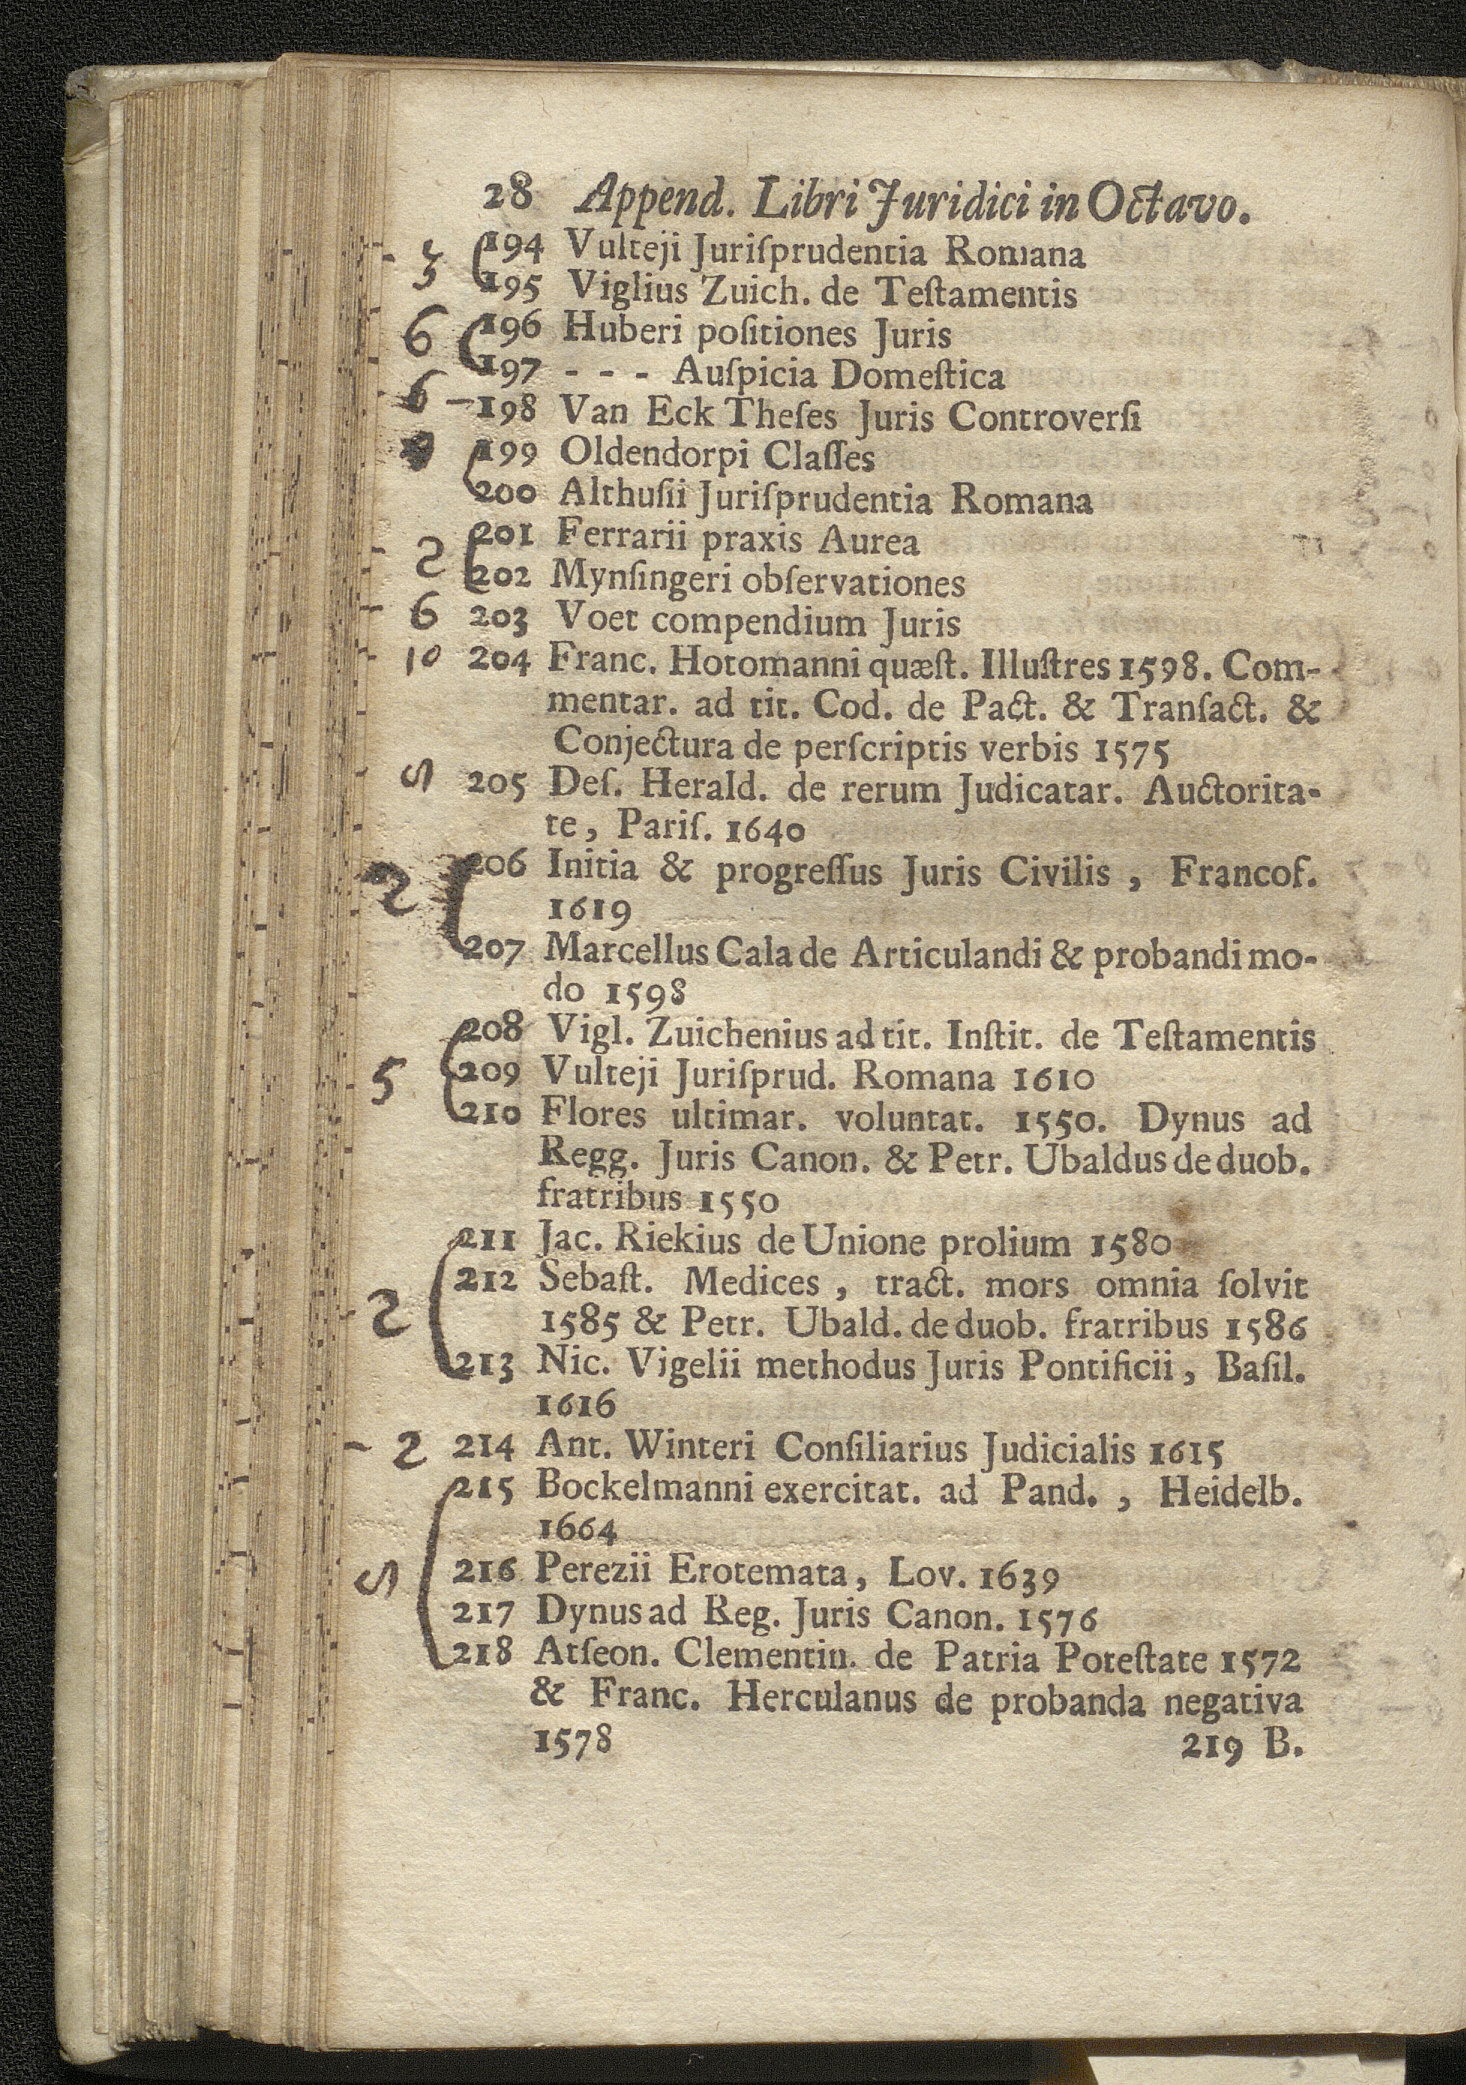 28 Append. Libri Juridici in Octavo.
194 Vulteji Juriſprudentia Romana
195 Viglius Zuich. de Teſtamentis
6 196 Huberi poſitiones Juris
197 - - - Auſpicia Domeſtica
6 – 198 Van Eck Theſes Juris Controverſi
199 Oldendorpi Claſſes
200 Althuſii Juriſprudentia Romana
201 Ferrarii praxis Aurea
2 202 Mynſingeri obſervationes
6 203 Voet compendium Juris
10 204 Franc. Hotomanni quæſt. Illuſtres 1598. Com-
mentar. ad tit. Cod. de Pact. & Tranſact. &
Conjectura de perſcriptis verbis 1575
205 Deſ. Herald. de rerum Judicatar. Auctorita-
te, Pariſ. 1640
2 206 Initia & progreſſus Juris Civilis, Francof.
1619
207 Marcellus Cala de Articulandi & probandi mo-
do 1598
208 Vigl. Zuichenius ad tit. Inſtit. de Teſtamentis
5 209 Vulteji Juriſprud. Romana 1610
210 Flores ultimar. voluntat. 1550. Dynus ad
Regg. Juris Canon. & Petr. Ubaldus de duob.
fratribus 1550
211 Jac. Riekius de Unione prolium 1580
212 Sebaſt. Medices, tract. mors omnia ſolvit
2 1585 & Petr. Ubald. de duob. fratribus 1586
213 Nic. Vigelii methodus Juris Pontificii, Baſil.
1616
2 214 Ant. Winteri Conſiliarius Judicialis 1615
215 Bockelmanni exercitat. ad Pand., Heidelb.
1664
216 Perezii Erotemata, Lov. 1639
217 Dynus ad Reg. Juris Canon. 1576
218 Atſeon. Clementin. de Patria Poteſtate 1572
& Franc. Herculanus de probanda negativa
1578 219 B.